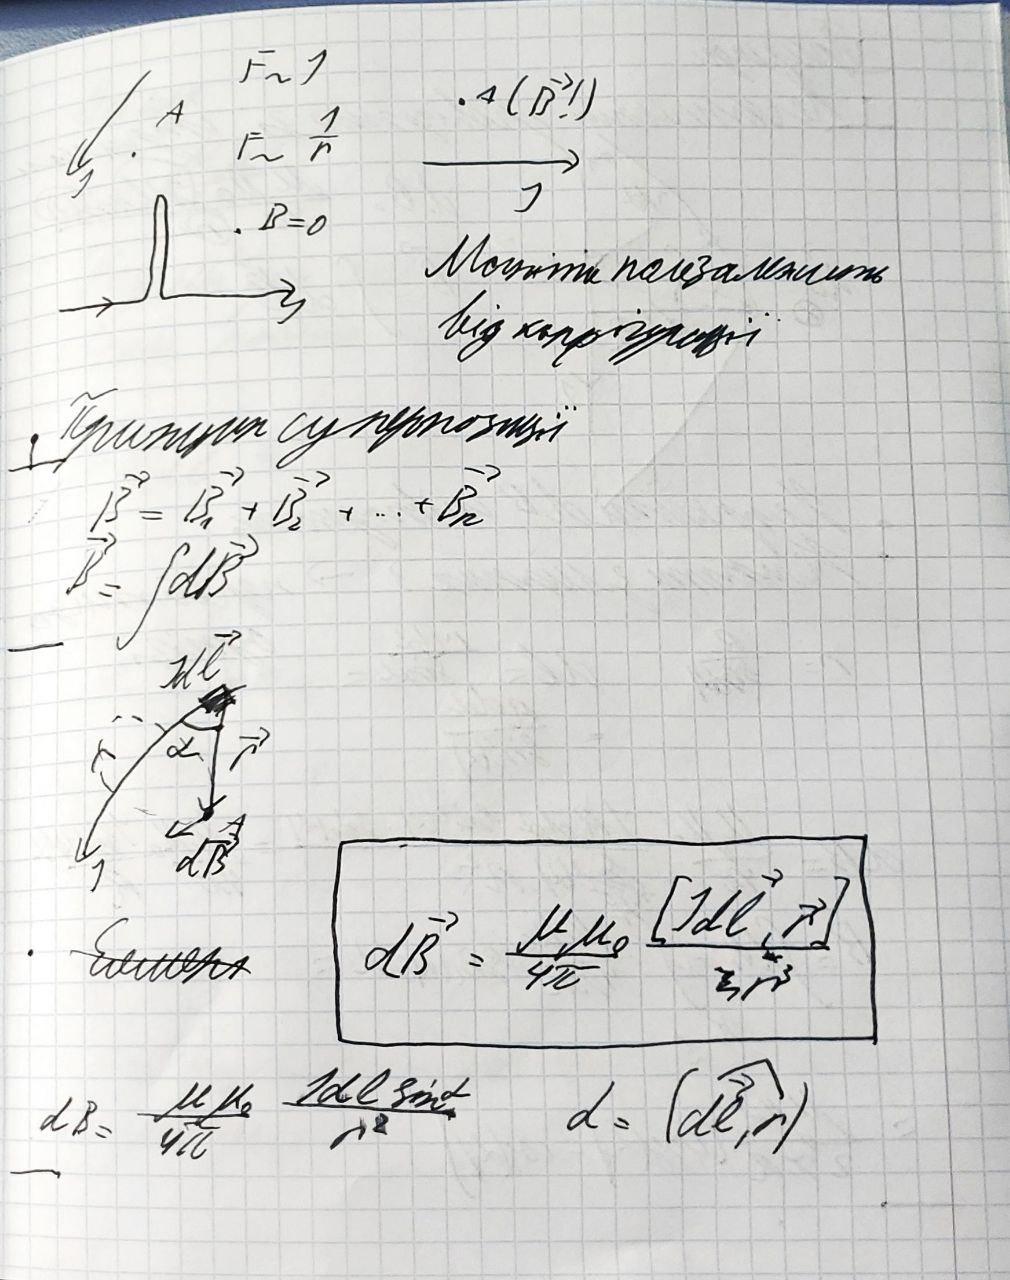 F ~ I
A
F ~ 1/r
I
. A (B⃗!)
I
. B = 0
I
Магнітне поле залежить
від конфігурації
Принцип суперпозиції
B⃗ = B⃗₁ + B⃗₂ + ... + B⃗ₙ
B⃗ = ∫dB⃗
Idl⃗
α
r⃗
A
I
dB⃗
dB⃗ = μμ₀/4π [Idl⃗, r⃗]/r³
dB = μμ₀/4π Idl sinα/r²
α = (dl⃗,^r)